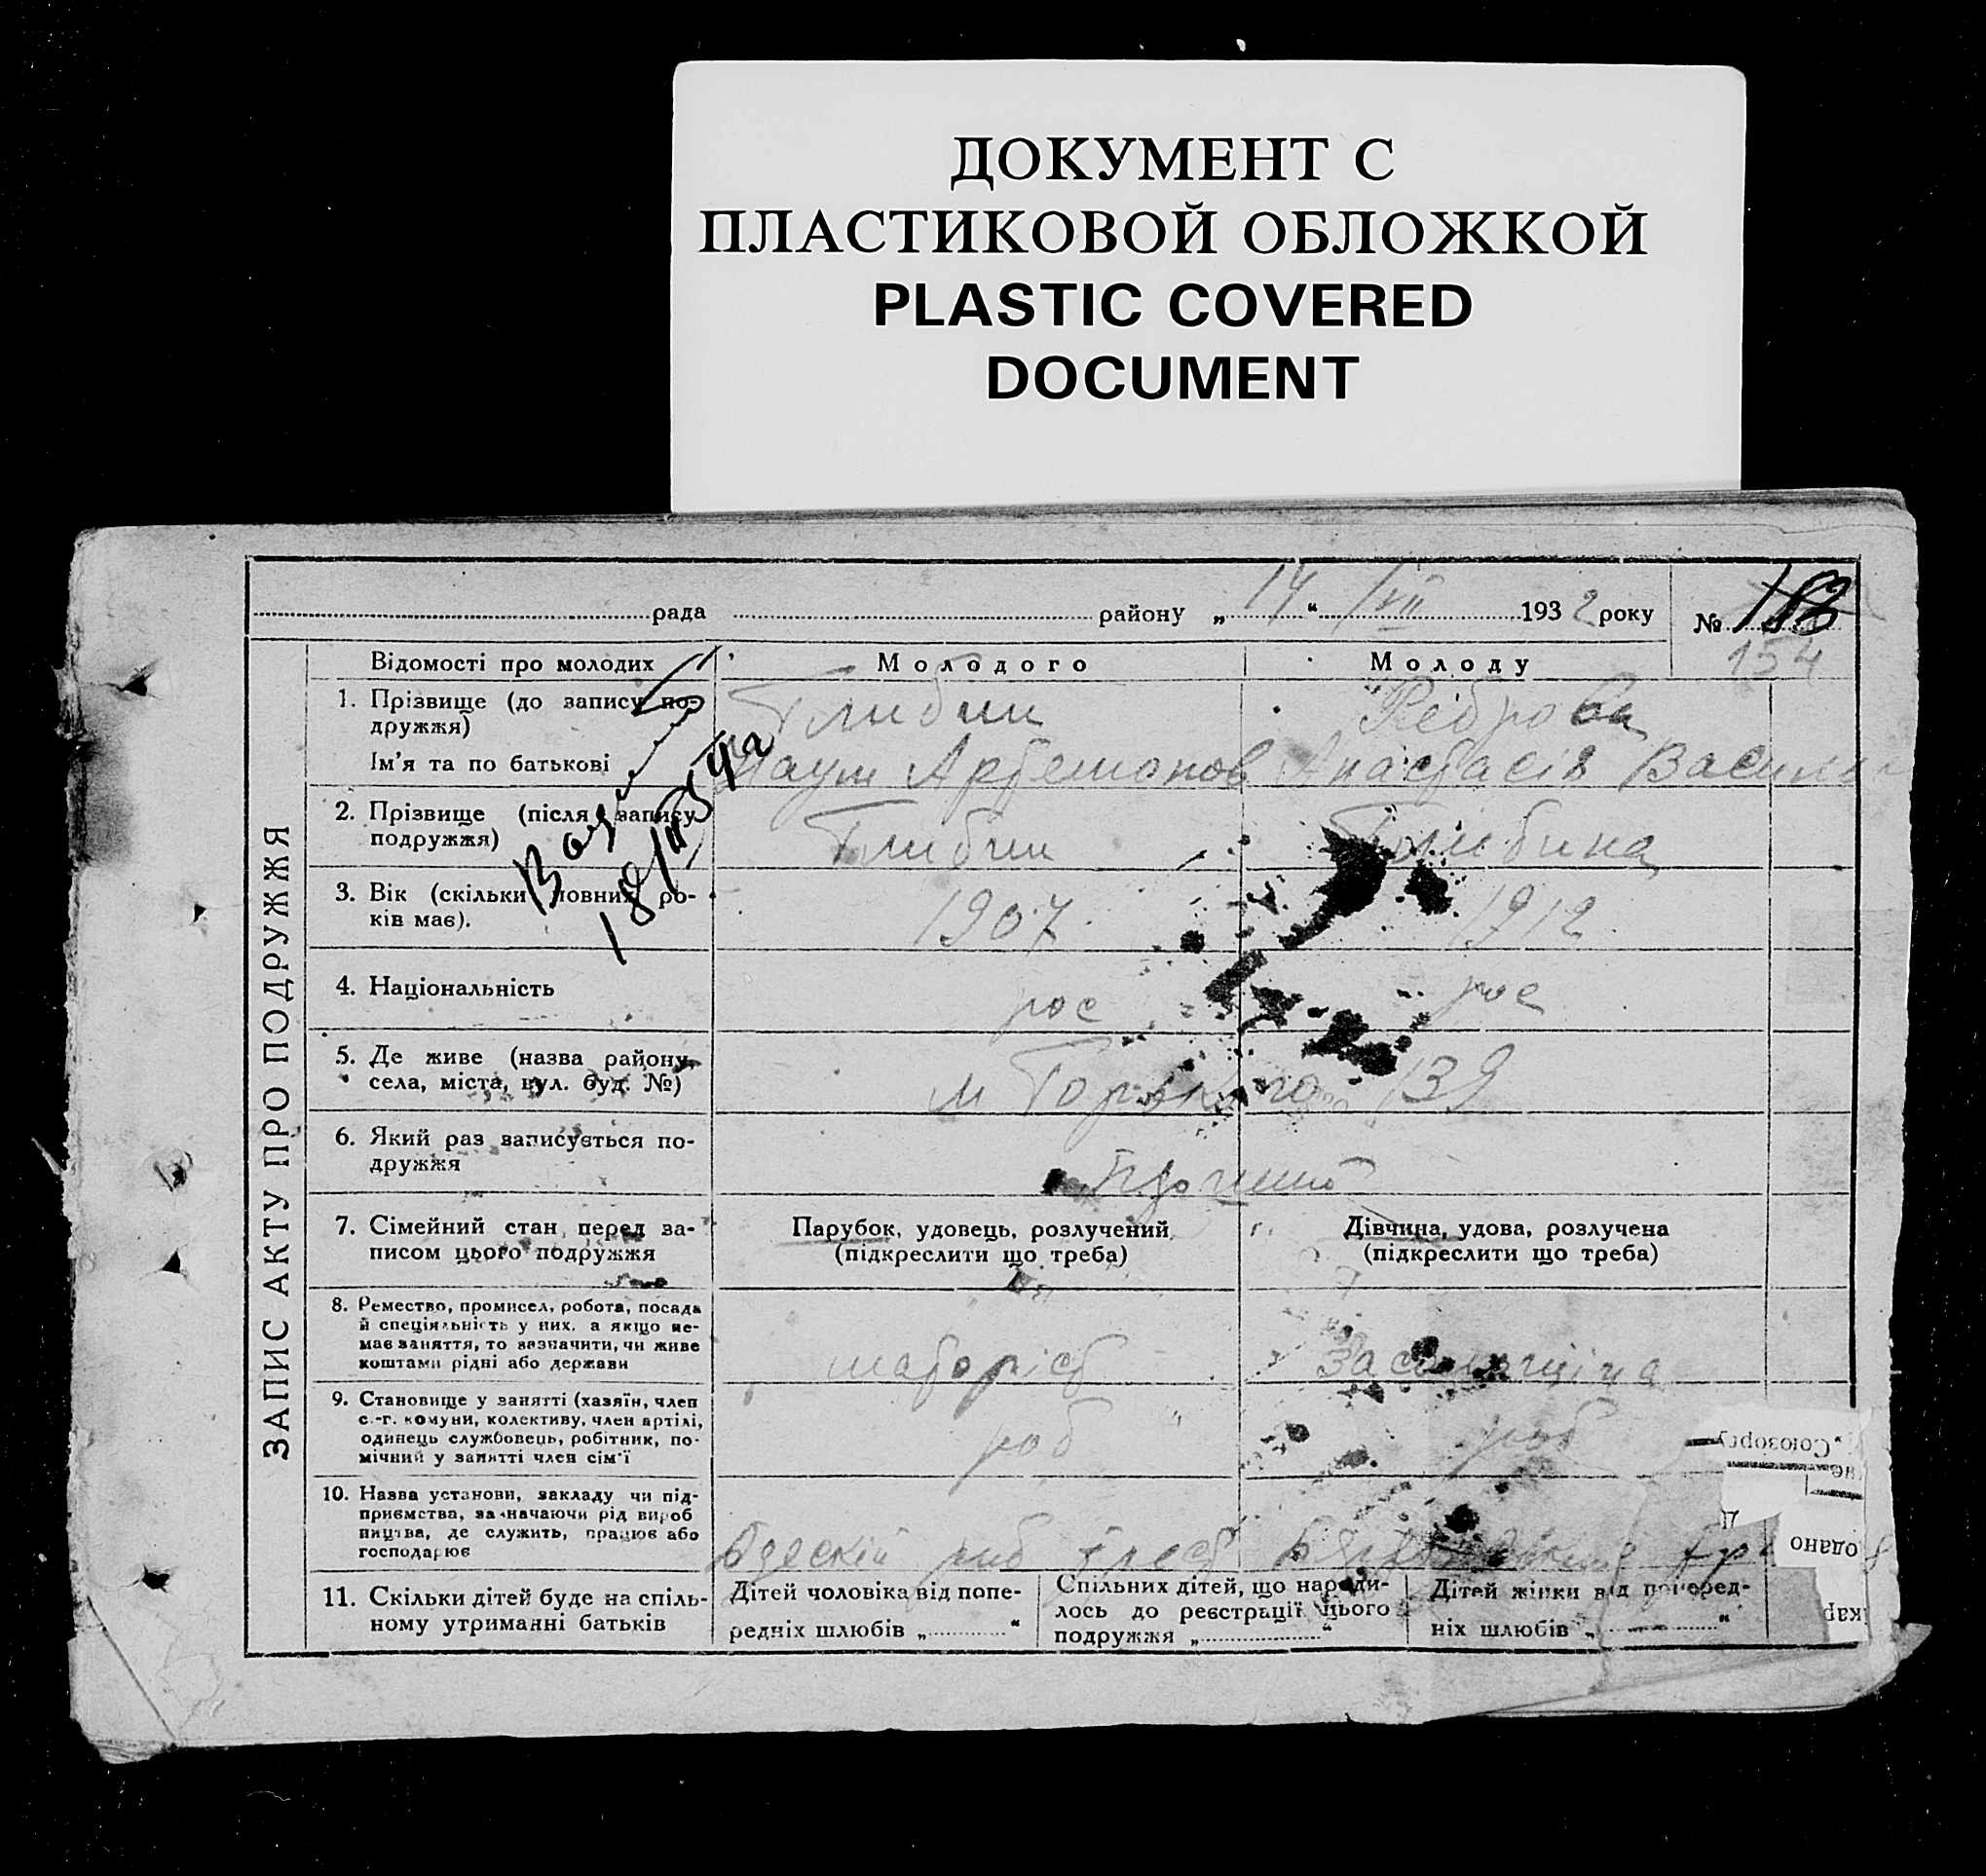 ДОКУМЕНТ С
ПЛАСТИКОВОЙ ОБЛОЖКОЙ
PLASTIC COVERED
DOCUMENT
рада района „14“ VII 1932 року №
154
ЗАПИС АКТУ ПРО ПОДРУЖЖЯ
Відомості про молодих Молодого Молоду
1. Прізвище (до запису по-
дружжя) Глибин Реброва
Ім'я та по батькові Наум Артемонов Анастасія Васильи
2. Прізвище (після запису
подружжя) Глибин Глибина
3. Вік (скільки повних ро-
ків має). 1907 1912
4. Національність рос рос
5. Де живе (назва району,
села, міста, вул. буд. №) м Горького 139
6. Який раз записується по-
дружжя
7. Сімейний стан перед за-
писом цього подружжя
Парубок, удовець, розлучений
(підкреслити що треба)
Дівчина, удова, розлучена
(підкреслити що треба)
8. Ремество, промисел, робота, посада
й спеціяльність у них, а якщо не-
має заняття, то зазначити, чи живе
коштами рідні або держави
9. Становище у занятті (хазяїн, член
с.-г. комуни, колективу, член артілі,
одинець службовець, робітник, по-
мічний у занятті член сім'ї
роб роб
10. Назва установи, закладу чи під-
приємства, зазначаючи рід вироб
ництва, де служить, працює або
господарює
Одескій риб трест
11. Скільки дітей буде на спіль-
ному утриманні батьків
Дітей чоловіка від попе-
редніх шлюбів „ “
Спільних дітей, що народи-
лось до реєстрації цього
подружжя „ “
Дітей жінки від поперед-
ніх шлюбів „ “
Союзоргу
одано
кар